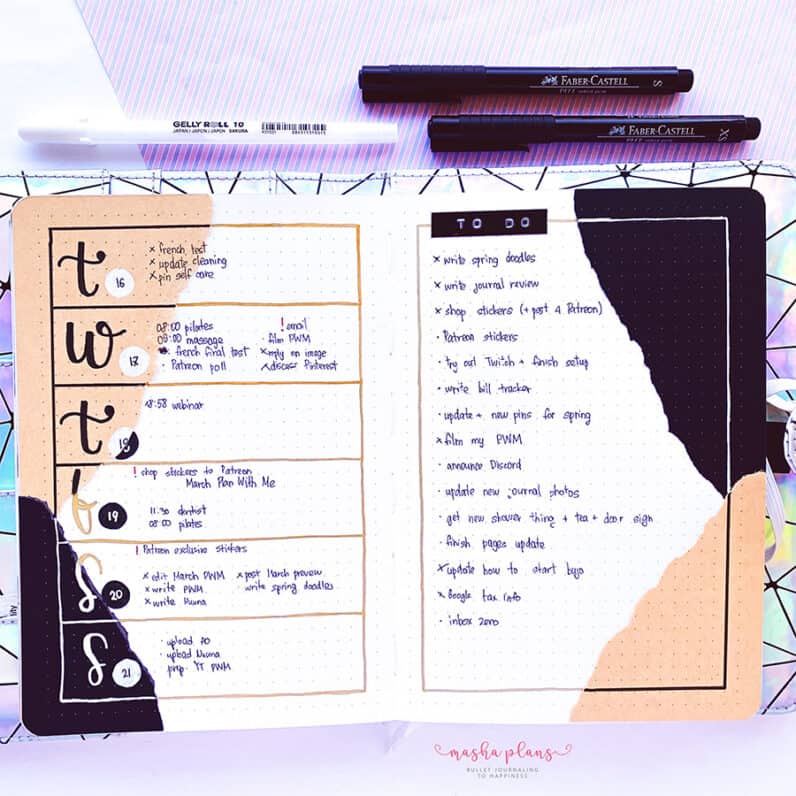 FABER-CASTELL
PITT artist pen
S
FABER-CASTELL
XS
GELLY ROLL 10
JAPAN / JAPON / JAPON SAKURA
t
16
x french test
x update cleaning
x pin self care
w
08:00 pilates
09:00 massage
french final test
· Patreon poll
! email
· film PWM
x reply on image
x discuss Pinterest
t
18
18:58 webinar
f
19
! shop stickers to Patreon
March Plan With Me
11:30 dentist
08:00 pilates
s
20
! Patreon exclusive stickers
x edit March PWM
x write PWM
x write
x post March preview
· write spring doodles
s
21
· upload
· upload
· prep YT PWM
TO DO
x write spring doodles
x write journal review
x shop stickers (+ post 4 Patreon)
· Patreon stickers
· try out Twitch + finish setup
· write bill tracker
· update + new pins for spring
x film my PWM
· announce Discord
· update new journal photos
· get new shower thing + tea + door sign
· finish pages update
x update how to start bujo
x Google tax info
· inbox zero
masha plans
BULLET JOURNALING
TO HAPPINESS